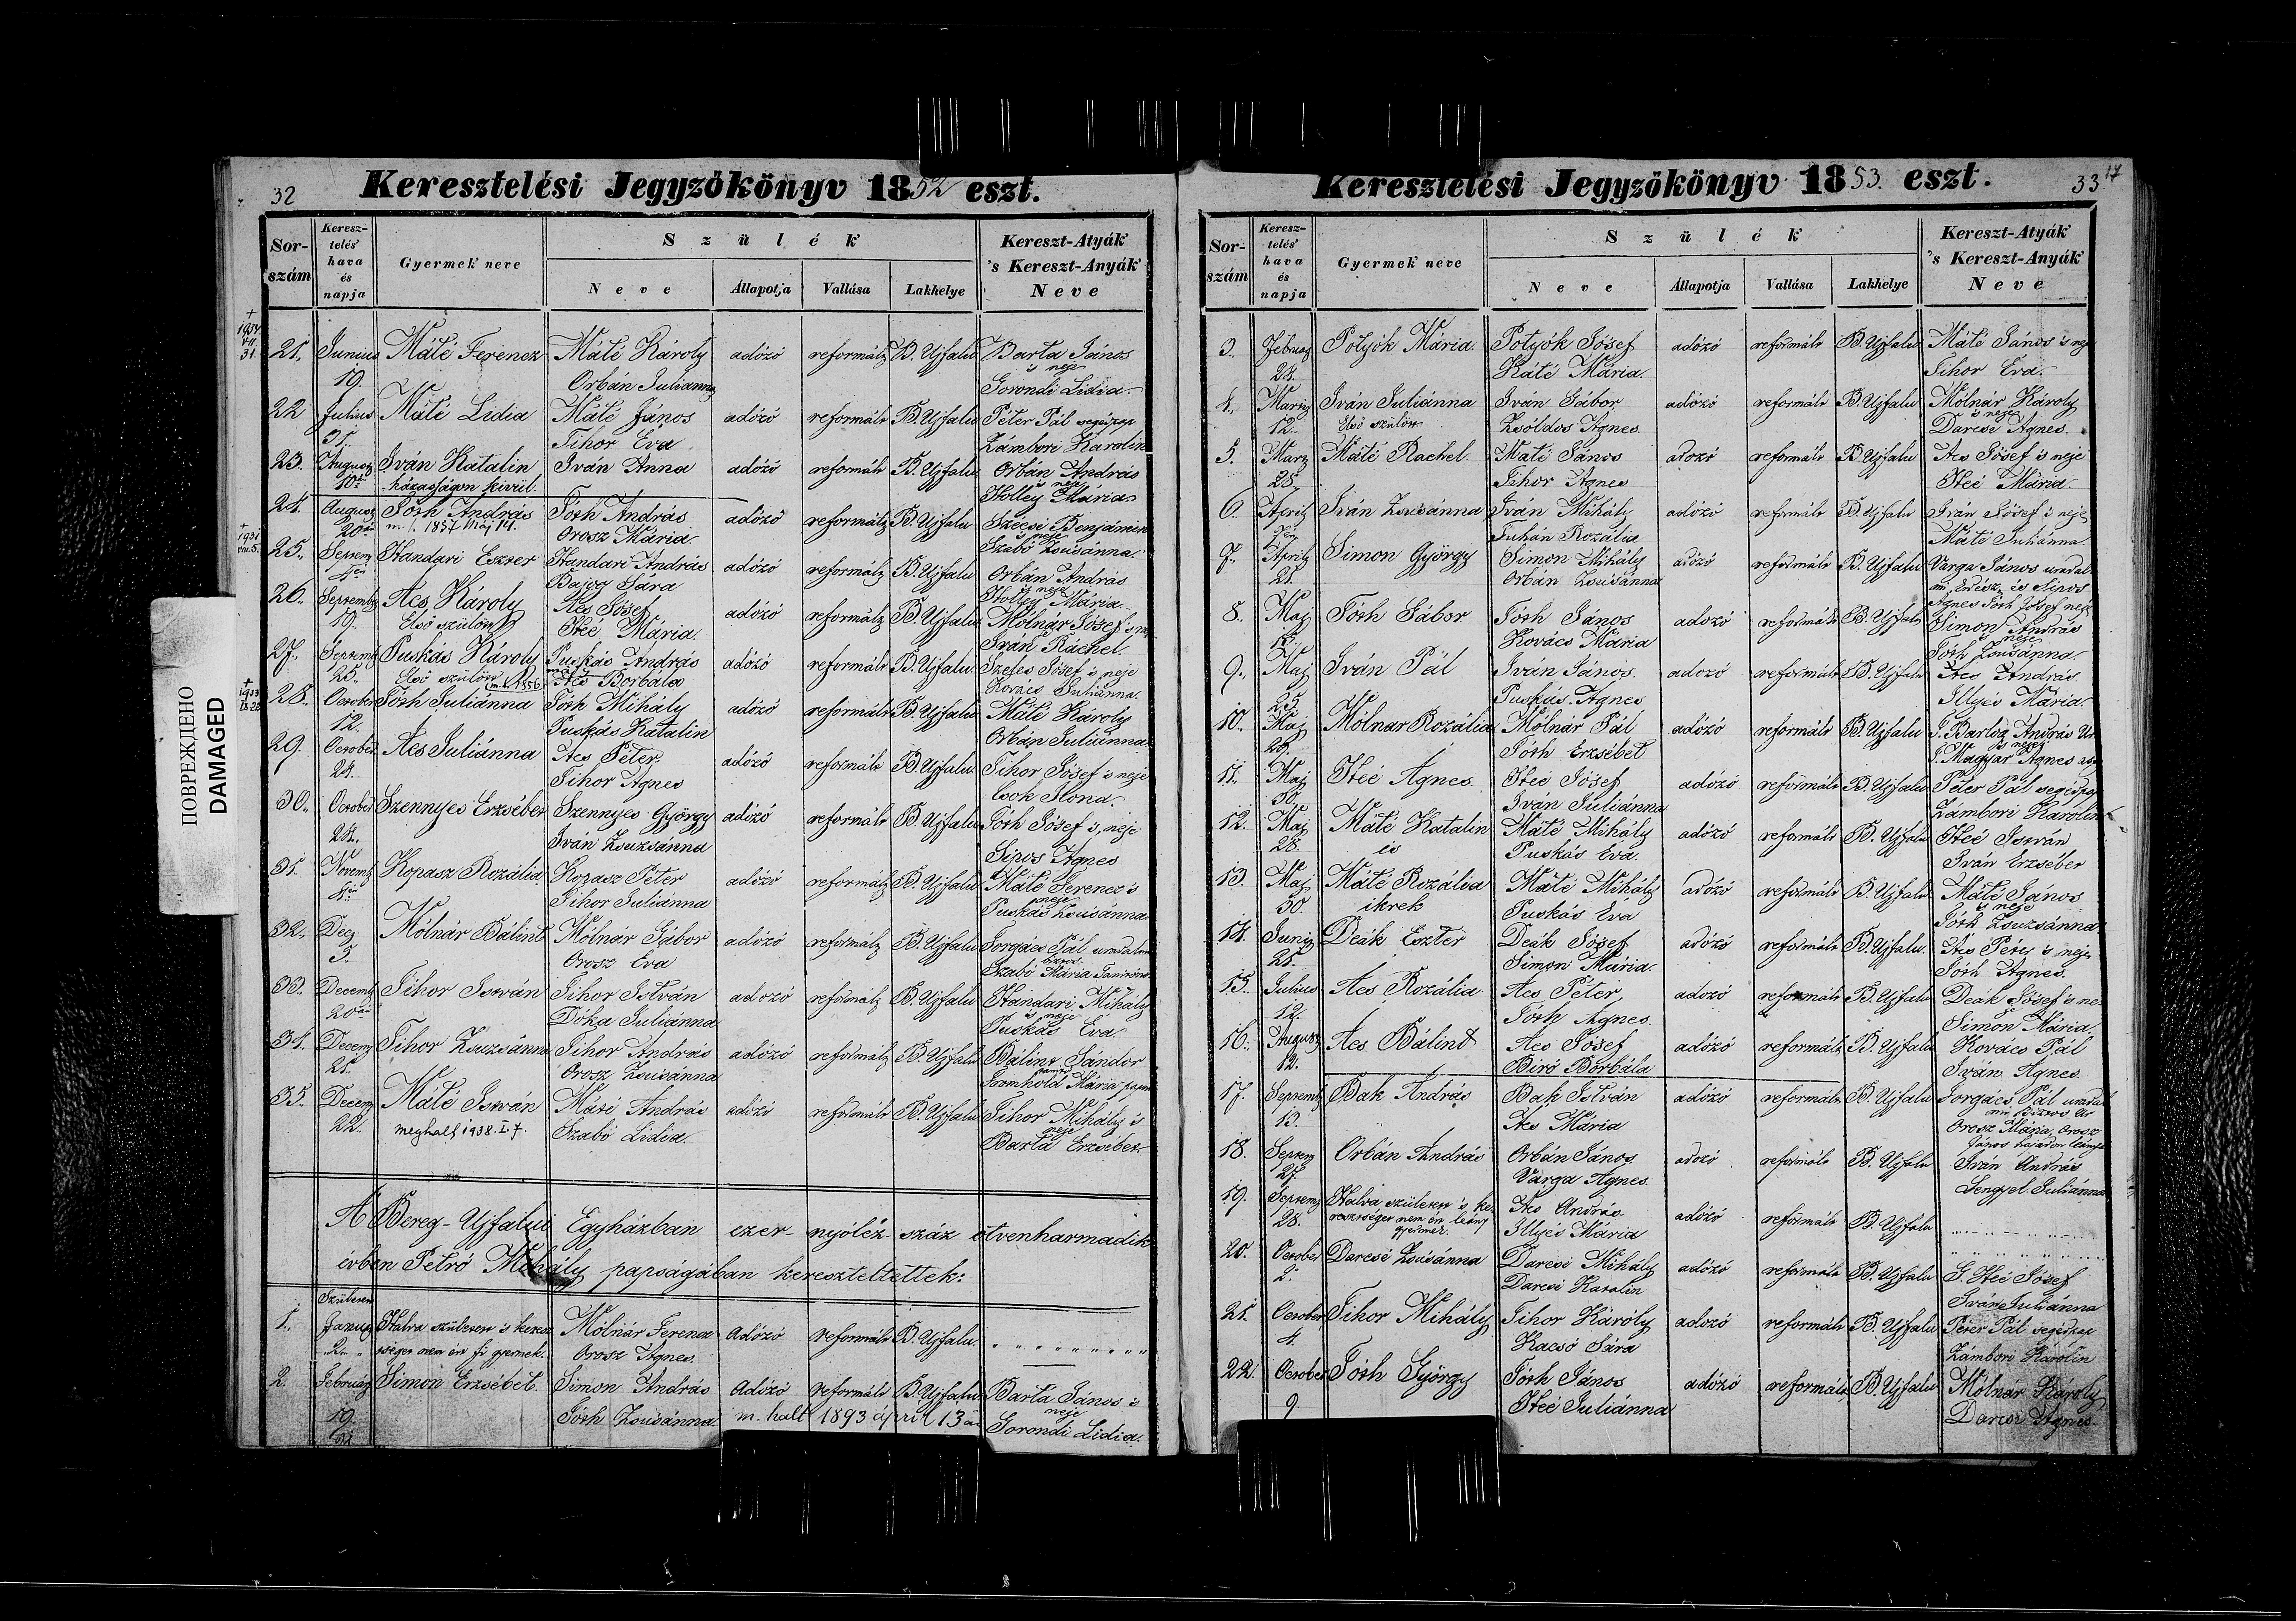 ПОВРЕЖДЕНО
DAMAGED
32
Keresztelési Jegyzőkönyv 1852 eszt.
Sorszám
Keresztelés' hava és napja
Gyermek neve
Szülék
Neve
Állapotja
Vallása
Lakhelye
Kereszt-Atyák 's Kereszt-Anyák Neve
21. Junius 19. Máté Ferencz Máté Károly Orbán Julianna adózó reformált B. Ujfalu Barta János is neje Gorondi Lidia
22 Julius 31. Máté Lidia Máté János Tihor Eva adózó reformált B. Ujfalu Péter Pál segédpap Zámbori Karolin
23. August Iván Katalin házasságon kivül. Iván Anna adózó reformált B. Ujfalu Orbán András is neje Holley Mária
24. August 20án Tóth András m. h. 1857 Máj 14. Tóth András Orosz Mária. adózó reformált B. Ujfalu Szecsei Benjámin is neje Szabó Zsuzsánna.
25. Septem Handari Eszter Handari András Sára adózó reformált B. Ujfalu Orbán András is neje Holley Mária
26. Septemb 19. Acs Károly Első szülött Acs Jósef Iteé Mária. adózó reformált B. Ujfalu Molnár Jósef is neje Iván Ráchel.
27. Septemb 25. Puskás Károly Első szülött m. h. 1856 Puskás András Acs Borbála adózó reformált B. Ujfalu Jósef is neje Kovács Juliánna.
28. October 12. Tóth Juliánna Tóth Mihály Puskás Katalin adózó reformált B. Ujfalu Máté Károly Orbán Juliánna.
29. October 24. Acs Juliánna Acs Péter Tihor Agnes adózó reformált B. Ujfalu Tihor Jósef is neje Ilona.
30. October 24. Szennyes Erzsébet Szennyes György Iván Zsuzsanna adózó reformált B. Ujfalu Tóth Jósef is neje Sipos Agnes
31. Novemb Kopasz Rozália Kopasz Péter Tihor Julianna adózó reformált B. Ujfalu Máté Ferencz is neje Puskás Zsuzsánna
32. Dec 5. Mólnár Bálint Mólnár Gábor Orosz Eva adózó reformált B. Ujfalu Forgács Pál Szabó Mária
33. Decemb 20án Tihor István Tihor István Dóka Juliánna adózó reformált B. Ujfalu Handari Mihály is neje Puskás Eva
34. Decem 21. Tihor Zsuzsánna Tihor András Orosz Zsuzsánna adózó reformált B. Ujfalu Balint Sándor Mária
35. Decem 22. Máté István meghalt 1938. I. 7. Máté András Szabó Lidia. adózó reformált B. Ujfalu Tihor Mihály is neje Barta Erzsébet
A Bereg-Ujfalui Egyházban ezer-nyólcz-száz ötvenharmadik
évben Petró Mihály papságában kereszteltettek:
1. Született Januar 2. Halva született is keresztséget nem ért fi gyermek. Mólnár Ferencz Orosz Agnes. Adózó reformált B. Ujfalu
2. Február 19. Simon Erzsébet. Simon András Tóth Zsuzsánna Adózó reformált B. Ujfalu Barta János is neje Gorondi Lidia.
m. halt 1893 ápril 13án
33 17
Keresztelési Jegyzőkönyv 1853. eszt.
Sorszám
Keresztelés' hava és napja
Gyermek neve
Szülék
Neve
Állapotja
Vallása
Lakhelye
Kereszt-Atyák 's Kereszt-Anyák Neve
3. Február 24. Potyók Mária. Potyók Jósef Máté Mária. adózó reformált B. Ujfalu Máté János is neje Tihor Eva.
4. Martz 12. Iván Juliánna Első szülött Iván Gábor Zsóldos Agnes adózó reformált B. Ujfalu Mólnár Károly is neje Darcsi Agnes.
5. Martz 28. Máté Rachel. Máté János Tihor Agnes adózó reformált B. Ujfalu Acs Jósef is neje Iteé Mária.
6. April Iván Zsuzsánna Iván Mihály Juhán Rozália adózó reformált B. Ujfalu Iván Jósef is neje Máté Juliánna.
7. April 21. Simon György Simon Mihály Orbán Zsuzsánna adózó reformált B. Ujfalu Varga János és Sipos Agnes Tóth Jósef neje
8. Maj Tóth Gábor Tóth János Kovács Mária adózó reformált B. Ujfalu Simon András is neje Tóth Zsuzsánna.
9. Maj 25 Iván Pál Iván János Puskás Agnes adózó reformált B. Ujfalu Acs András Illyés Mária.
10. Maj Mólnar Rozália Mólnár Pál Tóth Erzsébet adózó reformált B. Ujfalu András is neje Magyar Agnes
11. Maj 30. Iteé Ágnes Iteé Jósef Iván Juliánna adózó reformált B. Ujfalu Péter Pál segédpap Zámbori Karolin
12. Maj 28. Máté Katalin és Máté Mihály Puskás Eva. adózó reformált B. Ujfalu Iteé István Iván Erzsébet
13. Maj 30. Máté Rozália ikrek Máté Mihály Puskás Eva adózó reformált B. Ujfalu Máté János is neje Tóth Zsuzsánna
14. Juni 21. Deák Eszter Deák Jósef Simon Mária. adózó reformált B. Ujfalu. Acs Péter is neje Tóth Agnes.
15. Julius 12. Acs Rozália Acs Péter Tóth Agnes. adózó reformált B. Ujfalu Deák Jósef is neje Simon Mária.
16. August 12. Acs Bálint Acs Jósef Biró Borbála adózó reformált B. Ujfalu Kovács Pál Iván Agnes
17. Septemb 13. Bak András Bak István Acs Mária adózó reformált B. Ujfalu Forgács Pál Orosz Mária, Orosz János hajadon leánya
18. Septem 27. Orbán András Orbán János Varga Agnes. adózó reformált B. Ujfalu Iván András Lengyel Juliánna
19. Septemb 28. Halva született is keresztséget nem ért leány gyermek. Acs András Illyés Mária adózó reformált B. Ujfalu
20. October 2. Darcsi Zsuzsánna Darcsi Mihály Darcsi Karolin adózó reformált B. Ujfalu G. Iteé Jósef Iván Juliánna
21. October 4. Tihor Mihály Tihor Károly Kacsó Sára adózó reformált B. Ujfalu Péter Pál segédpap Zámbori Karolin
22. October 9 Tóth György Tóth János Iteé Juliánna adózó reformált B. Ujfalu Mólnár Károly Darcsi Agnes